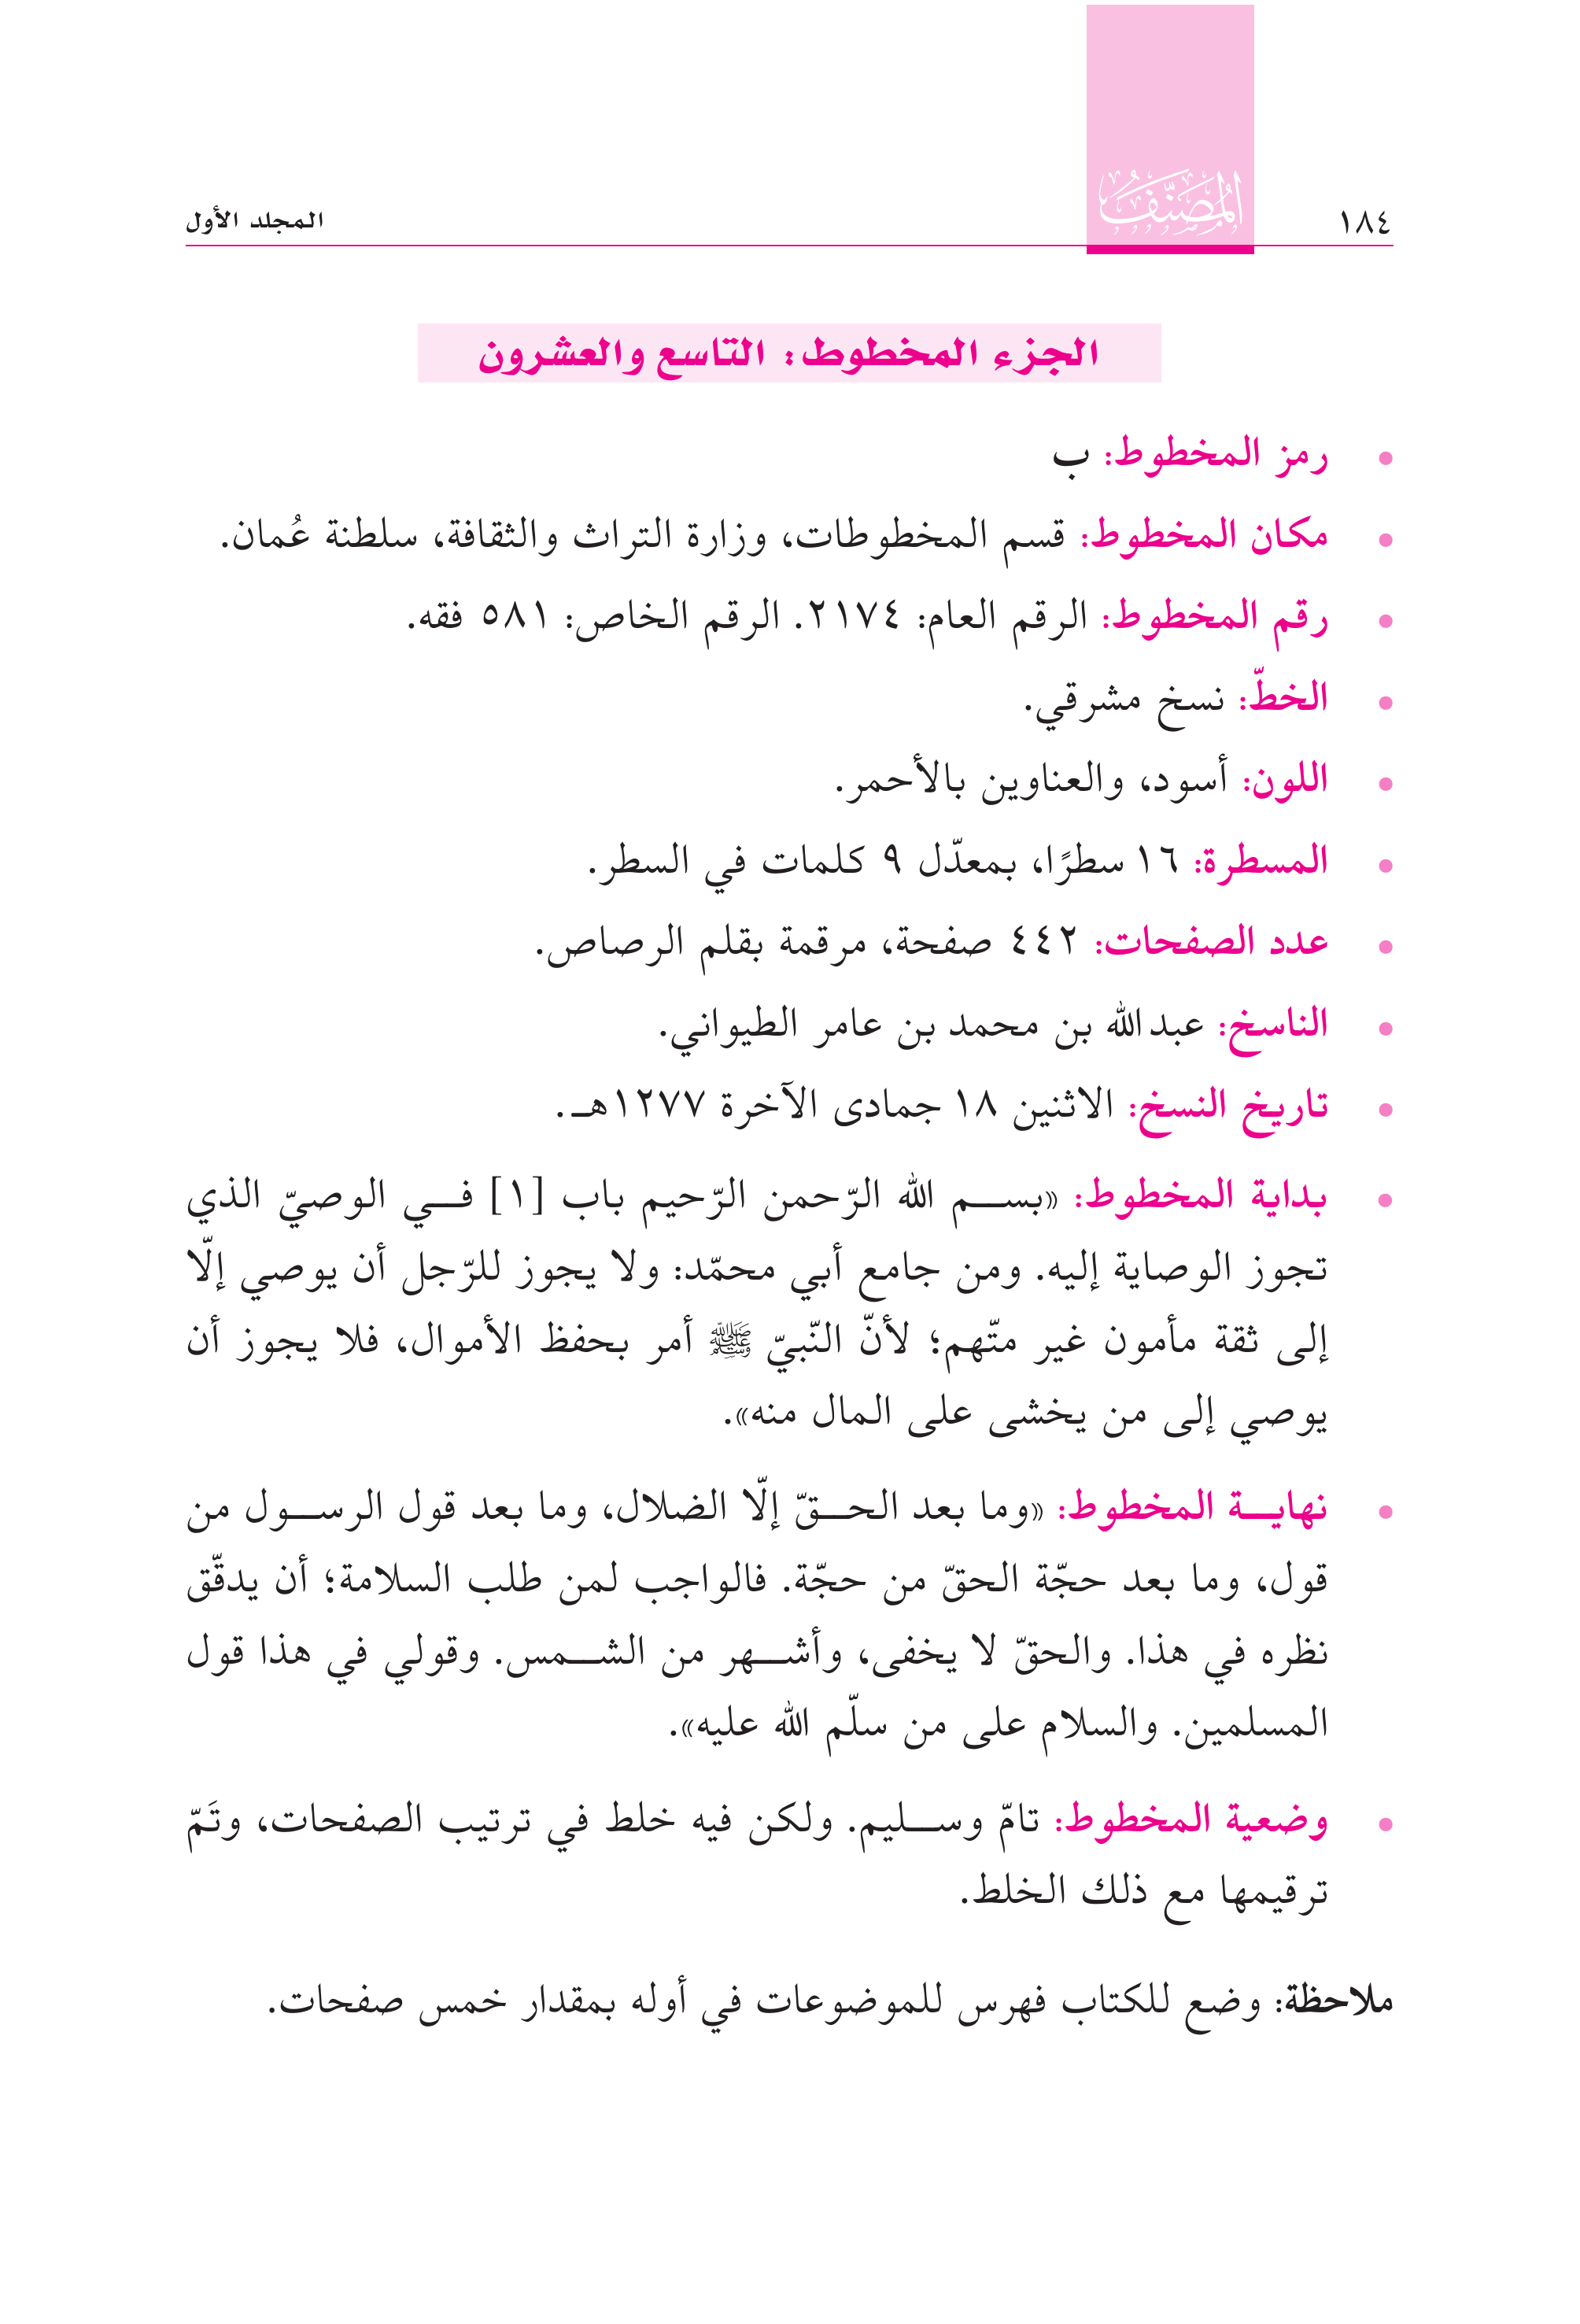 ١٨٤
المُصَنَّفُ
المجلد الأول
الجزء المخطوط: التاسع والعشرون
• رمز المخطوط: ب
• مكان المخطوط: قسم المخطوطات، وزارة التراث والثقافة، سلطنة عُمان.
• رقم المخطوط: الرقم العام: ٢١٧٤. الرقم الخاص: ٥٨١ فقه.
• الخطّ: نسخ مشرقي.
• اللون: أسود، والعناوين بالأحمر.
• المسطرة: ١٦ سطرًا، بمعدّل ٩ كلمات في السطر.
• عدد الصفحات: ٤٤٢ صفحة، مرقمة بقلم الرصاص.
• الناسخ: عبدالله بن محمد بن عامر الطيواني.
• تاريخ النسخ: الاثنين ١٨ جمادى الآخرة ١٢٧٧هـ.
• بداية المخطوط: «بسم الله الرّحمن الرّحيم باب [١] في الوصيّ الذي
تجوز الوصاية إليه. ومن جامع أبي محمّد: ولا يجوز للرّجل أن يوصي إلّا
إلى ثقة مأمون غير متّهم؛ لأنّ النّبيّ ﷺ أمر بحفظ الأموال، فلا يجوز أن
يوصي إلى من يخشى على المال منه».
• نهاية المخطوط: «وما بعد الحقّ إلّا الضلال، وما بعد قول الرسول من
قول، وما بعد حجّة الحقّ من حجّة. فالواجب لمن طلب السلامة؛ أن يدقّق
نظره في هذا. والحقّ لا يخفى، وأشهر من الشمس. وقولي في هذا قول
المسلمين. والسلام على من سلّم الله عليه».
• وضعية المخطوط: تامّ وسليم. ولكن فيه خلط في ترتيب الصفحات، وتَمّ
ترقيمها مع ذلك الخلط.
ملاحظة: وضع للكتاب فهرس للموضوعات في أوله بمقدار خمس صفحات.